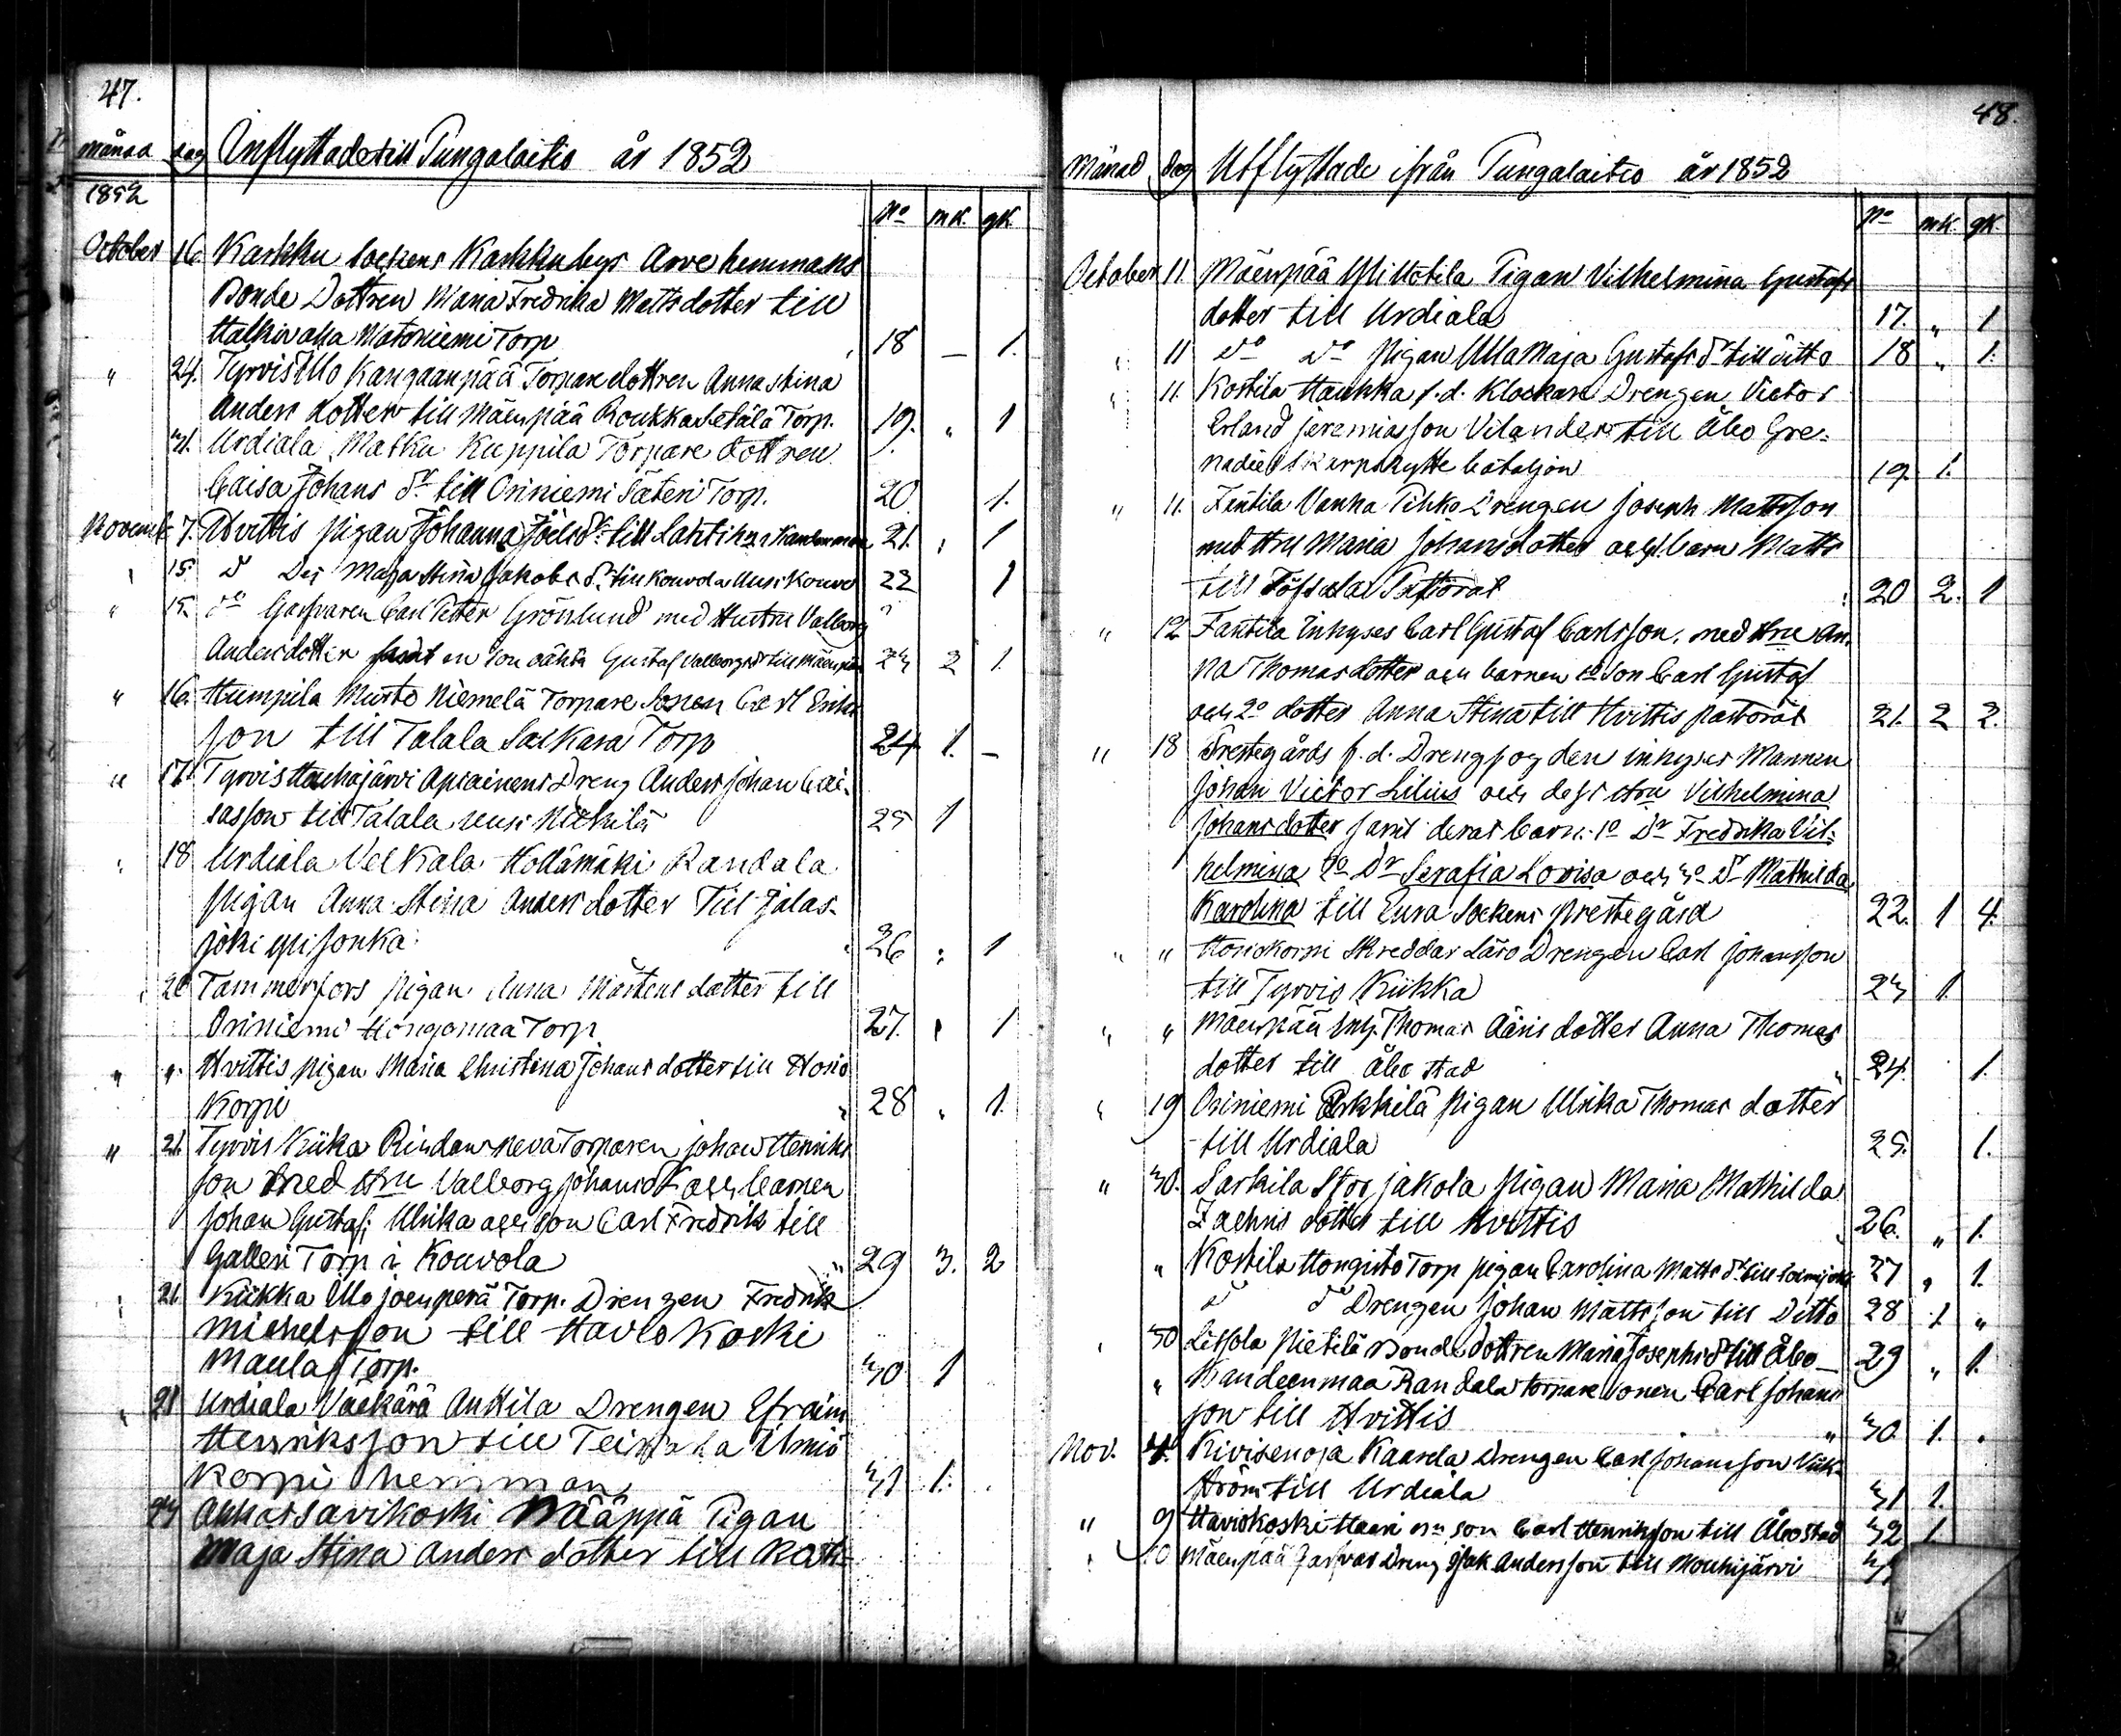 47.
månad dag Inflyttade till Pungalaitio år 1852
1852 No mk. qk.
October 16. Karkku Sockens Karkku bys Arve hemmans
Bonde Dottren Maria Fredrika Matts dotter till
Matoniemi Torp 18 – 1.
" 24. Tyrvis Illo Kangaanpää Torpare dottren Anna Stina
Anders dotter till Mäenpää Roukka Torp. 19. " 1
31. Urdiala Matku Kuppila Torpare dottren
Caisa Johans dr till Oriniemi Säteri Torp. 20. 1.
Novemb. 7. Hvittis pigan Johanna Joels dr till 21. " 1
" 15. D Maja Stina Jakobs dr till Kouvola Uusi Kouvo 22 1
" 15. do Carl Petter Grönlund med Hustru Valborg
Andersdotter samt en son oäkta Gustaf Valborgs till Mäenpää 23 2 1.
" 16. Humpila Murto Niemelä Torpare Sonen Carl Eriks
son till Talala Sackara Torp 24 1. –
" 17. Tyrvis Houhajärvi Dreng Anders Johan Cai-
sasson till Talala uusi 25 1
" 18 Urdiala Velkala Randala
pigan Anna Stina Anders dotter Till Jalas-
joki 26 " 1
" 20 Tammerfors pigan Anna Mårtens dotter till
Oriniemi Hongomaa Torp 27. " 1
" " Hvittis pigan Maria Christina Johans dotter till Honio
Korpi 28 " 1.
" 21. Tyrvis Kiika Torparen Johan Henriks
son med Hru Valborg Johans dr och barnen
Johan Gustaf, Ulrika och son Carl Fredrik till
Galleri Torp i Kouvola 29 3. 2
" 21. Kiikka Illo joenperä Torp. Drengen Fredrik
Michelsson till Havio Koski
Maula Torp. 30 1
" 21 Urdiala Vackärä Anttila Drengen Efraim
Henriksson till
Korpi hemman 31 1.
23 Savikoski Pigan
Maja Stina Anders dotter till
48.
Månad dag Utflyttade ifrån Pungalaitio år 1852
No mk. qk.
October 11. Mäenpää Pigan Vilhelmina Gustafs
dotter till Urdiala 17. " 1
" 11 Do Do pigan Ulla Maja Gustafs dr till ditto 18 " 1.
" 11. Kostila Haukka f.d. Klockare Drengen Victor
Erland Jeremiasson Vilander till Åbo Gre-
nadier Skarpskytte bataljon 19. 1.
" 11. Fäntilä Vanha Pihko Drengen Joseph Mattsson
med Hru Maria Johansdotter och barn Matts
till Töfsala Pastorat 20 2. 1
" 12 Fäntilä Inhyses Carl Gustaf Carlsson, med Hru An-
na Thomasdotter och barnen 1o Son Carl Gustaf
och 2o dotter Anna Stina till Hvittis pastorat 21. 2 2.
" 18 Prestegårds f.d. Drengfogden inhyses Mannen
Johan Victor Lilius och dess Hru Vilhelmina
Johansdotter samt deras barn: 1o Dr Fredrika Vil-
helmina 2o Dr Serafia Lovisa och 3o Dr Mathilda
Karolina till Eura Sockens prestegård 22. 1 4.
" " Honiokorpi Skreddar Läro Drengen Carl Johansson
till Tyrvis Kiikka 23 1.
" " Mäenpää Inh. Thomas dotter Anna Thomas
dotter till Åbo stad 24. 1.
" 19 Oriniemi Erkkilä pigan Ulrika Thomas dotter
till Urdiala 25. 1.
" 30. Sarkila Stor jakola pigan Maria Mathilda
Zachris dotter till Hvittis 26. " 1.
" Kostila Hongisto Torp pigan Carolina Matts dr till 27 " 1.
D D Drengen Johan Mattsson till Ditto 28 1 "
" 30 Leppola Pietilä Bonde dottren Maria Josephs dr till Åbo 29 " 1.
" Kandeenmaa Randala torpare sonen Carl Johans
son till Hvittis 30 1. "
Nov. 4. Kivisenoja Kaarela Drengen Carl Johansson Vik-
ström till Urdiala 31 1.
" 9 Haviokoski son Carl Henriksson till Åbo stad 32 1.
" 10 Mäenpää Dreng Isak Andersson till Mouhijärvi